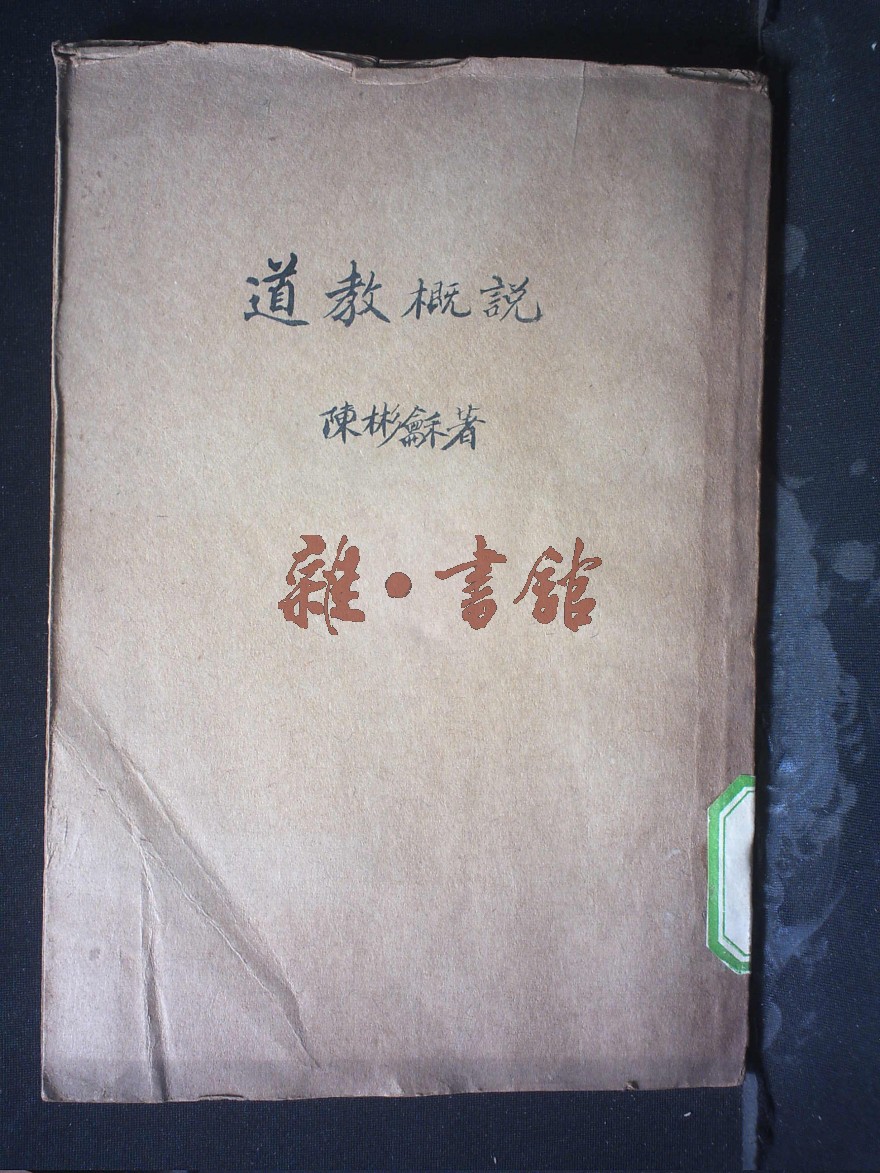 道教概説
陳彬龢著
雜·書館